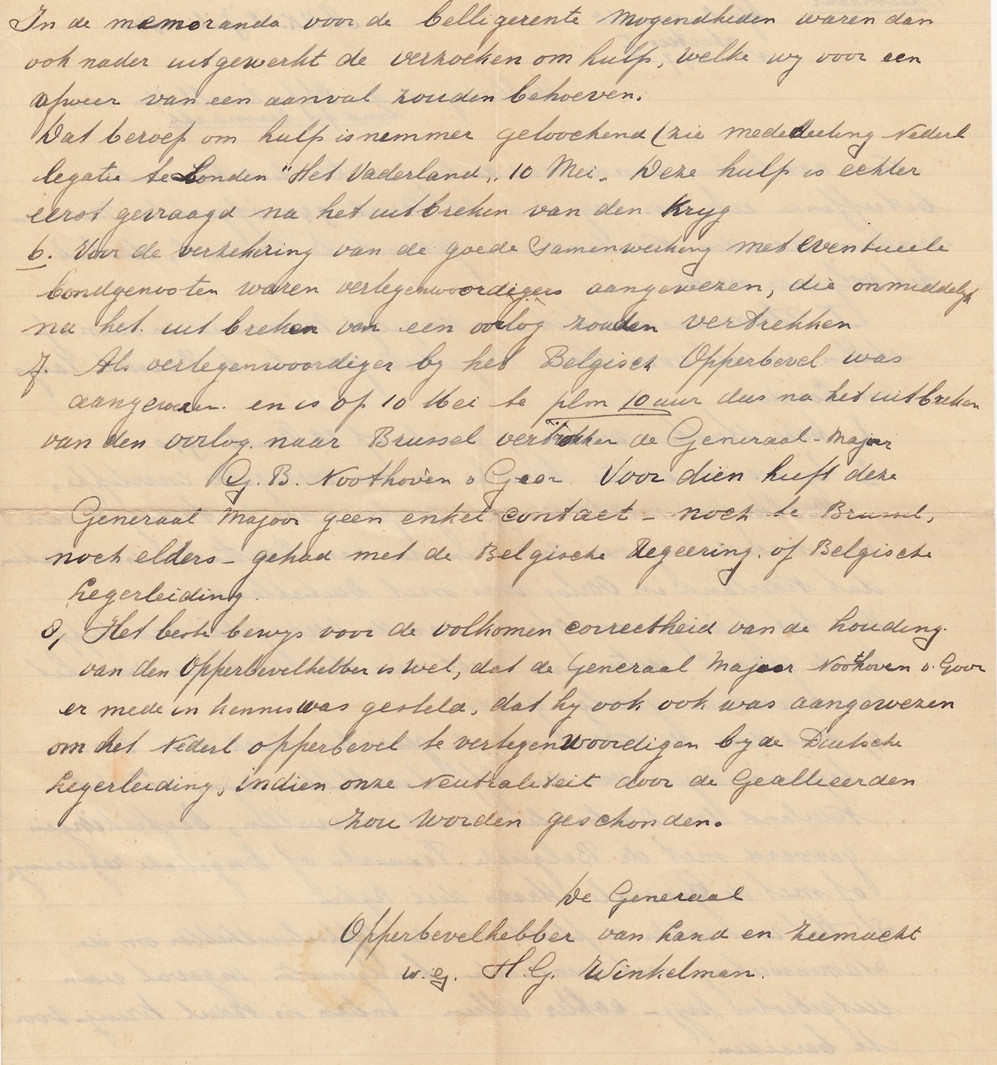 In de memoranda voor de belligerente Mogendheden waren dan
ook nader uitgewerkt de verzoeken om hulp, welke wy voor een
afweer van een aanval zouden behoeven.
Dat beroep om hulp is nimmer geloochend (zie mededeeling Nederl
legatie te Londen "Het Vaderland" 10 Mei. Deze hulp is echter
eerst gevraagd na het uitbreken van den Kryg
6. Voor de verzekering van de goede samenwerking met eventueele
bondgenooten waren vertegenwoordigers aangewezen, die onmiddelyk
na het uit breken van een oorlog zouden vertrekken
7. Als vertegenwoordiger by het Belgisch Opperbevel was
aangewezen en is op 10 Mei te plm 10 uur dus na het uitbreken
van den oorlog naar Brussel vertrokken de Generaal-Major
G. B. Noothoven v Goor. Voor dien heeft deze
Generaal Majoor geen enkel contact - noch te Brussel,
noch elders - gehad met de Belgische Regeering of Belgische
Legerleiding.
8, Het beste bewys voor de volkomen correctheid van de houding
van den Opperbevelhebber is wel, dat de Generaal Majoor Noothoven v. Goor
er mede in kennis was gesteld, dat hy ook ook was aangewezen
om het Nederl opperbevel te vertegenwoordigen by de Duitsche
Legerleiding, indien onze Neutraliteit door de Geallieerden
zou worden geschonden.
De Generaal
Opperbevelhebber van Land en Zeemacht
w.g. H.G. Winkelman.